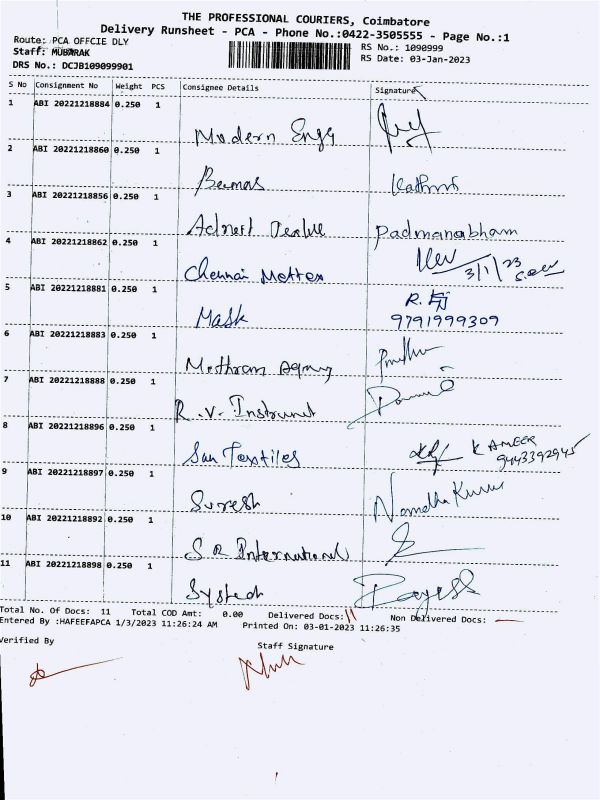 THE PROFESSIONAL COURIERS, Coimbatore
Delivery Runsheet - PCA - Phone No.:0422-3505555 - Page No.:1
Route: PCA OFFCIE DLY
RS No.: 1090999
Staff: MUBARAK
RS Date: 03-Jan-2023
DRS No.: DCJB109099901
S No Consignment No Weight PCS Consignee Details Signature
1 ABI 20221218884 0.250 1
Modern Engg
2 ABI 20221218860 0.250 1
3 ABI 20221218856 0.250 1
Padmanabham
4 ABI 20221218862 0.250 1
Chennai
3/1/23
5 ABI 20221218881 0.250 1
Mask R.
9791999309
6 ABI 20221218883 0.250 1
7 ABI 20221218888 0.250 1
R.V. Instrument
8 ABI 20221218896 0.250 1
Textiles KAMEER
9443392945
9 ABI 20221218897 0.250 1
Suresh Nanda Kumar
10 ABI 20221218892 0.250 1
S R International
11 ABI 20221218898 0.250 1
Systech
Total No. Of Docs: 11 Total COD Amt: 0.00 Delivered Docs: 11 Non Delivered Docs: —
Entered By :HAFEEFAPCA 1/3/2023 11:26:24 AM Printed On: 03-01-2023 11:26:35
Verified By
Staff Signature